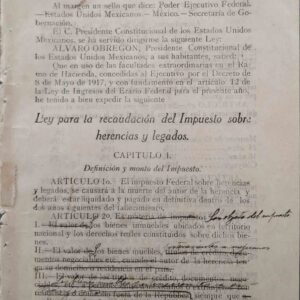 Al margen un sello que dice: Poder Ejecutivo Federal.—
Estados Unidos Mexicanos — México. — Secretaría de Go-
bernación.
El C. Presidente Constitucional de los Estados Unidos
Mexicanos, se ha servido dirigirme la siguiente Ley:
ALVARO OBREGON, Presidente Constitucional de
los Estados Unidos Mexicanos, a sus habitantes, sabed:
Que en uso de las facultades extraordinarias en el Ra-
mo de Hacienda, concedidas al Ejecutivo por el Decreto de
8 de Mayo de 1917, y con fundamento en el artículo 12 de
la Ley de Ingresos del Erario Federal para el presente año,
he tenido a bien expedir la siguiente
Ley para la recaudación del Impuesto sobre
herencias y legados.
CAPITULO I.
Definición y monto del Impuesto.
ARTICULO 1o. El impuesto Federal sobre herencias
y legados, se causará a la muerte del autor de la herencia y
deberá estar liquidado y pagado en definitiva dentro de los
dos años siguientes del fallecimiento.
ARTICULO 2o. Es materia de impuesto: Son objeto del impuesto
I.—El valor de los bienes inmuebles ubicados en territorio
nacional y los derechos reales constituidos sobre dichos bie-
nes.
II.—El valor de los bienes muebles,
cuando el autor de la herencia
su domicilio o residencia en el país.
III.—El valor de los créditos, documentos
fuera de la República siempre que